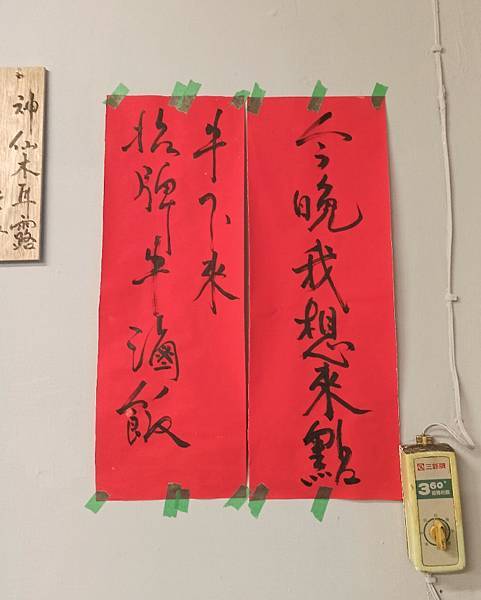 今晚我想來點
牛下來
招牌牛滷飯
神仙木耳露
360°